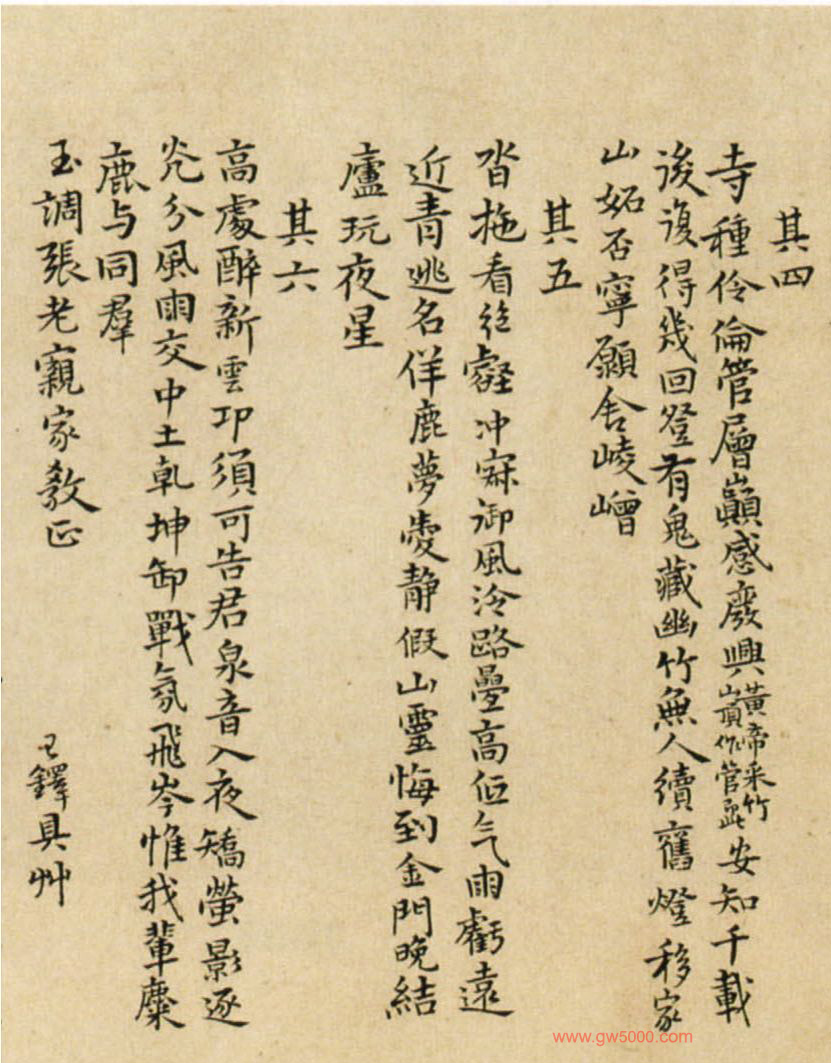 其四
寺種伶倫管層巔感廢興黃帝采竹
山頂作管處安知千載
後復得幾回登有鬼藏幽竹無人續舊燈移家
山妬否寧願舍崚嶒
其五
沓拖看絕壑冲寐御風泠路疊高低气雨虧遠
近青逃名佯鹿夢愛静假山靈悔到金門晚結
廬玩夜星
其六
高處醉新雲卭須可告君泉音入夜矯螢影逐
炗分風雨交中土乹坤卸戰氛飛岑惟我輩麋
鹿与同羣
玉調張老親家教正
王鐸具艸
www.gw5000.com